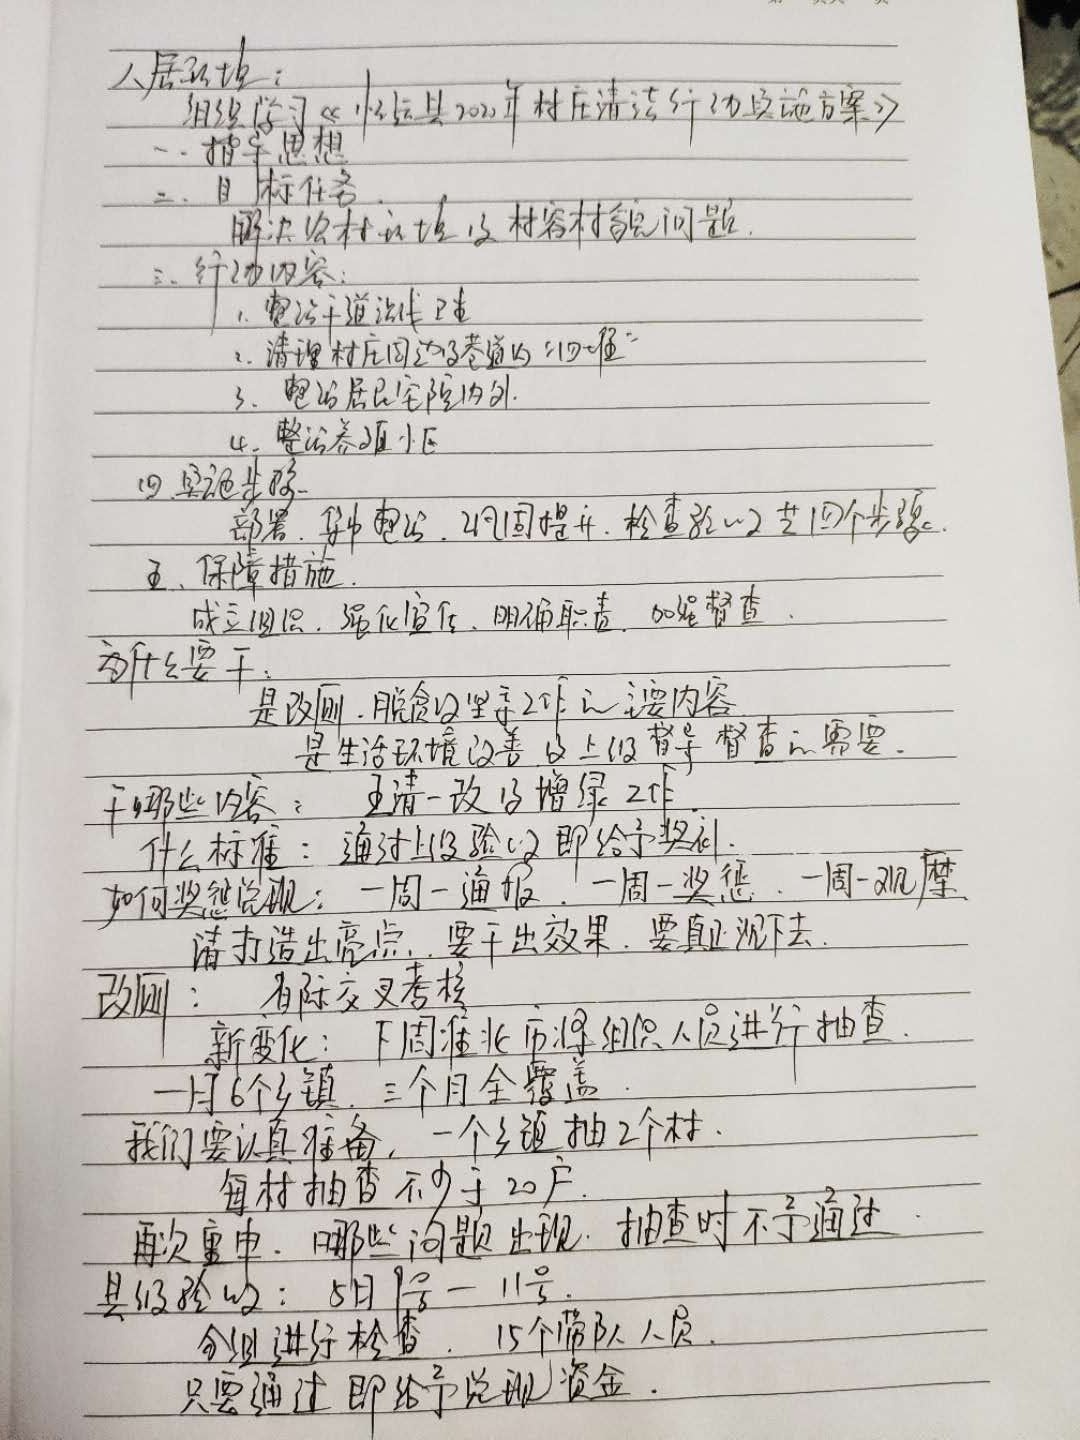 人居环境：
组织学习《濉溪县2020年村庄清洁行动实施方案》
一.指导思想
二.目标任务.
解决农村环境及村容村貌问题.
三.行动内容：
1.整治干道沿线卫生
2.清理村庄周边及巷道内"四堆"
3.整治居民宅院内外.
4.整治养殖小区
四.实施步骤
部署.集中整治.巩固提升.检查验收共四个步骤.
五、保障措施.
成立组织.强化宣传、明确职责.加强督查.
为什么要干：
是改厕.脱贫攻坚等工作的主要内容
是生活环境改善及上级督导督查的需要.
干哪些内容：五清一改及增绿工作.
什么标准：通过上级验收即给予奖补.
如何奖惩兑现：一周一通报.一周一奖惩.一周一观摩
请打造出亮点.要干出效果.要真正沉下去.
改厕：省际交叉考核
新变化：下周淮北市将组织人员进行抽查.
一月6个乡镇.三个月全覆盖.
我们要认真准备，一个乡镇抽2个村.
每村抽查不少于20户.
再次重申.哪些问题出现.抽查时不予通过.
县级验收：5月9号一11号.
分组进行检查.15个带队人员.
只要通过即给予兑现资金.